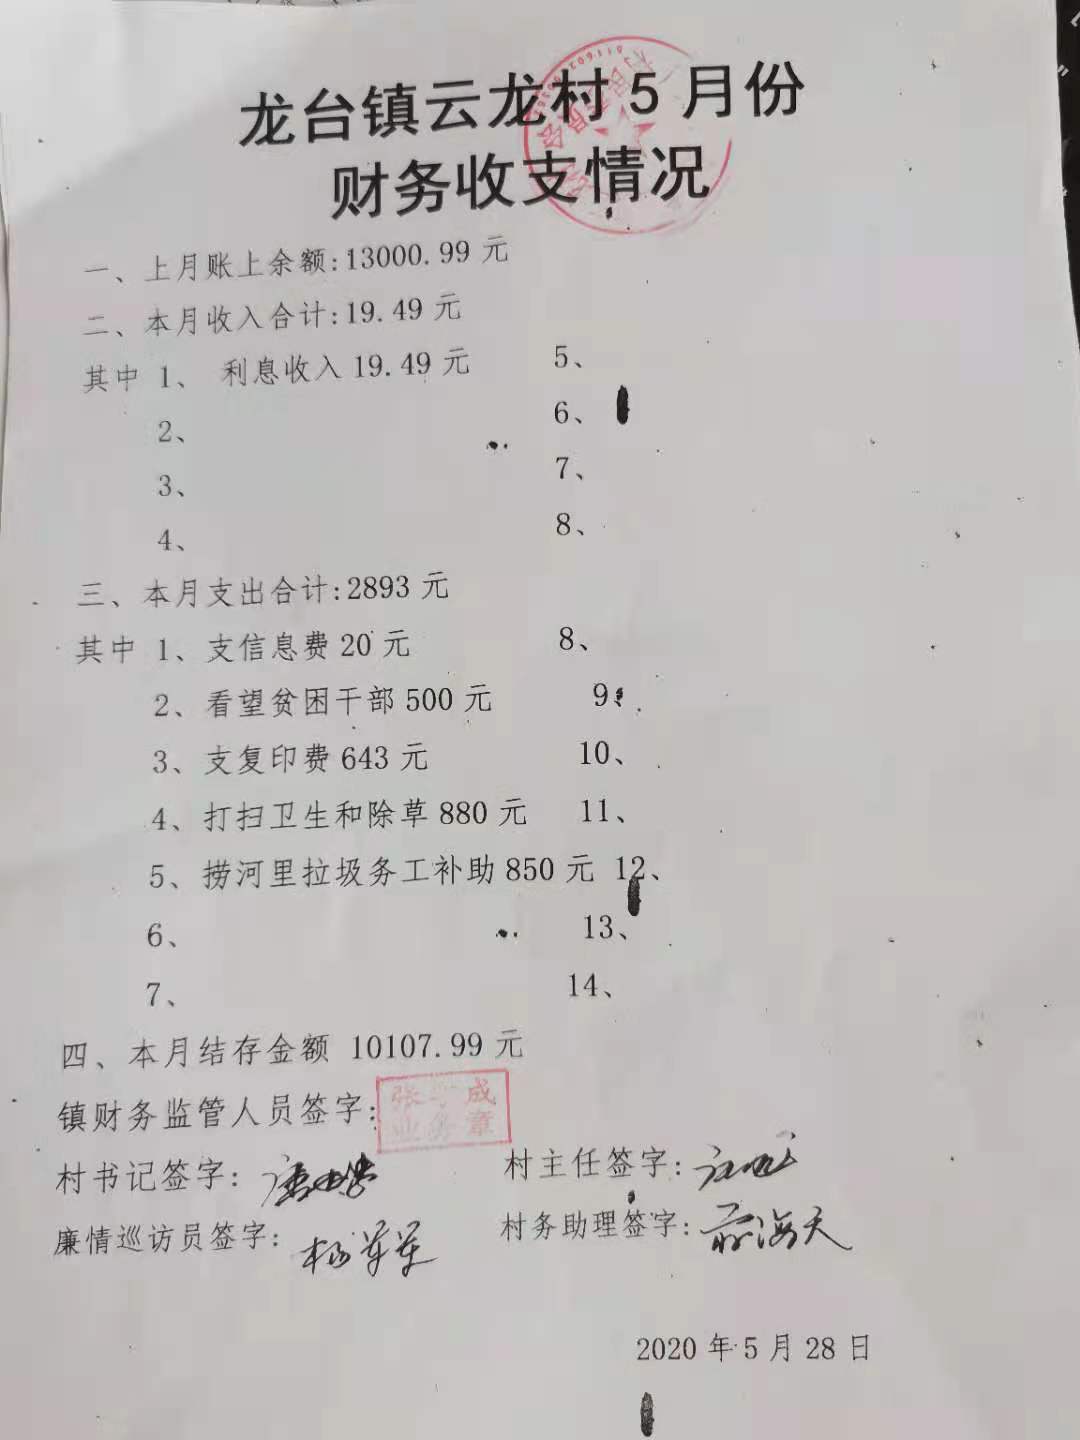 龙台镇云龙村5月份
财务收支情况
一、上月账上余额:13000.99元
二、本月收入合计:19.49元
其中 1、 利息收入19.49元 5、
2、 6、
3、 7、
4、 8、
三、本月支出合计:2893元
其中 1、支信息费20元 8、
2、看望贫困干部500元 9
3、支复印费643元 10、
4、打扫卫生和除草880元 11、
5、捞河里拉圾务工补助850元 12、
6、 13、
7、 14、
四、本月结存金额 10107.99元
镇财务监管人员签字:
张 成
业务章
村书记签字: 村主任签字:
廉情巡访员签字: 杨军军 村务助理签字: 海天
2020年5月28日